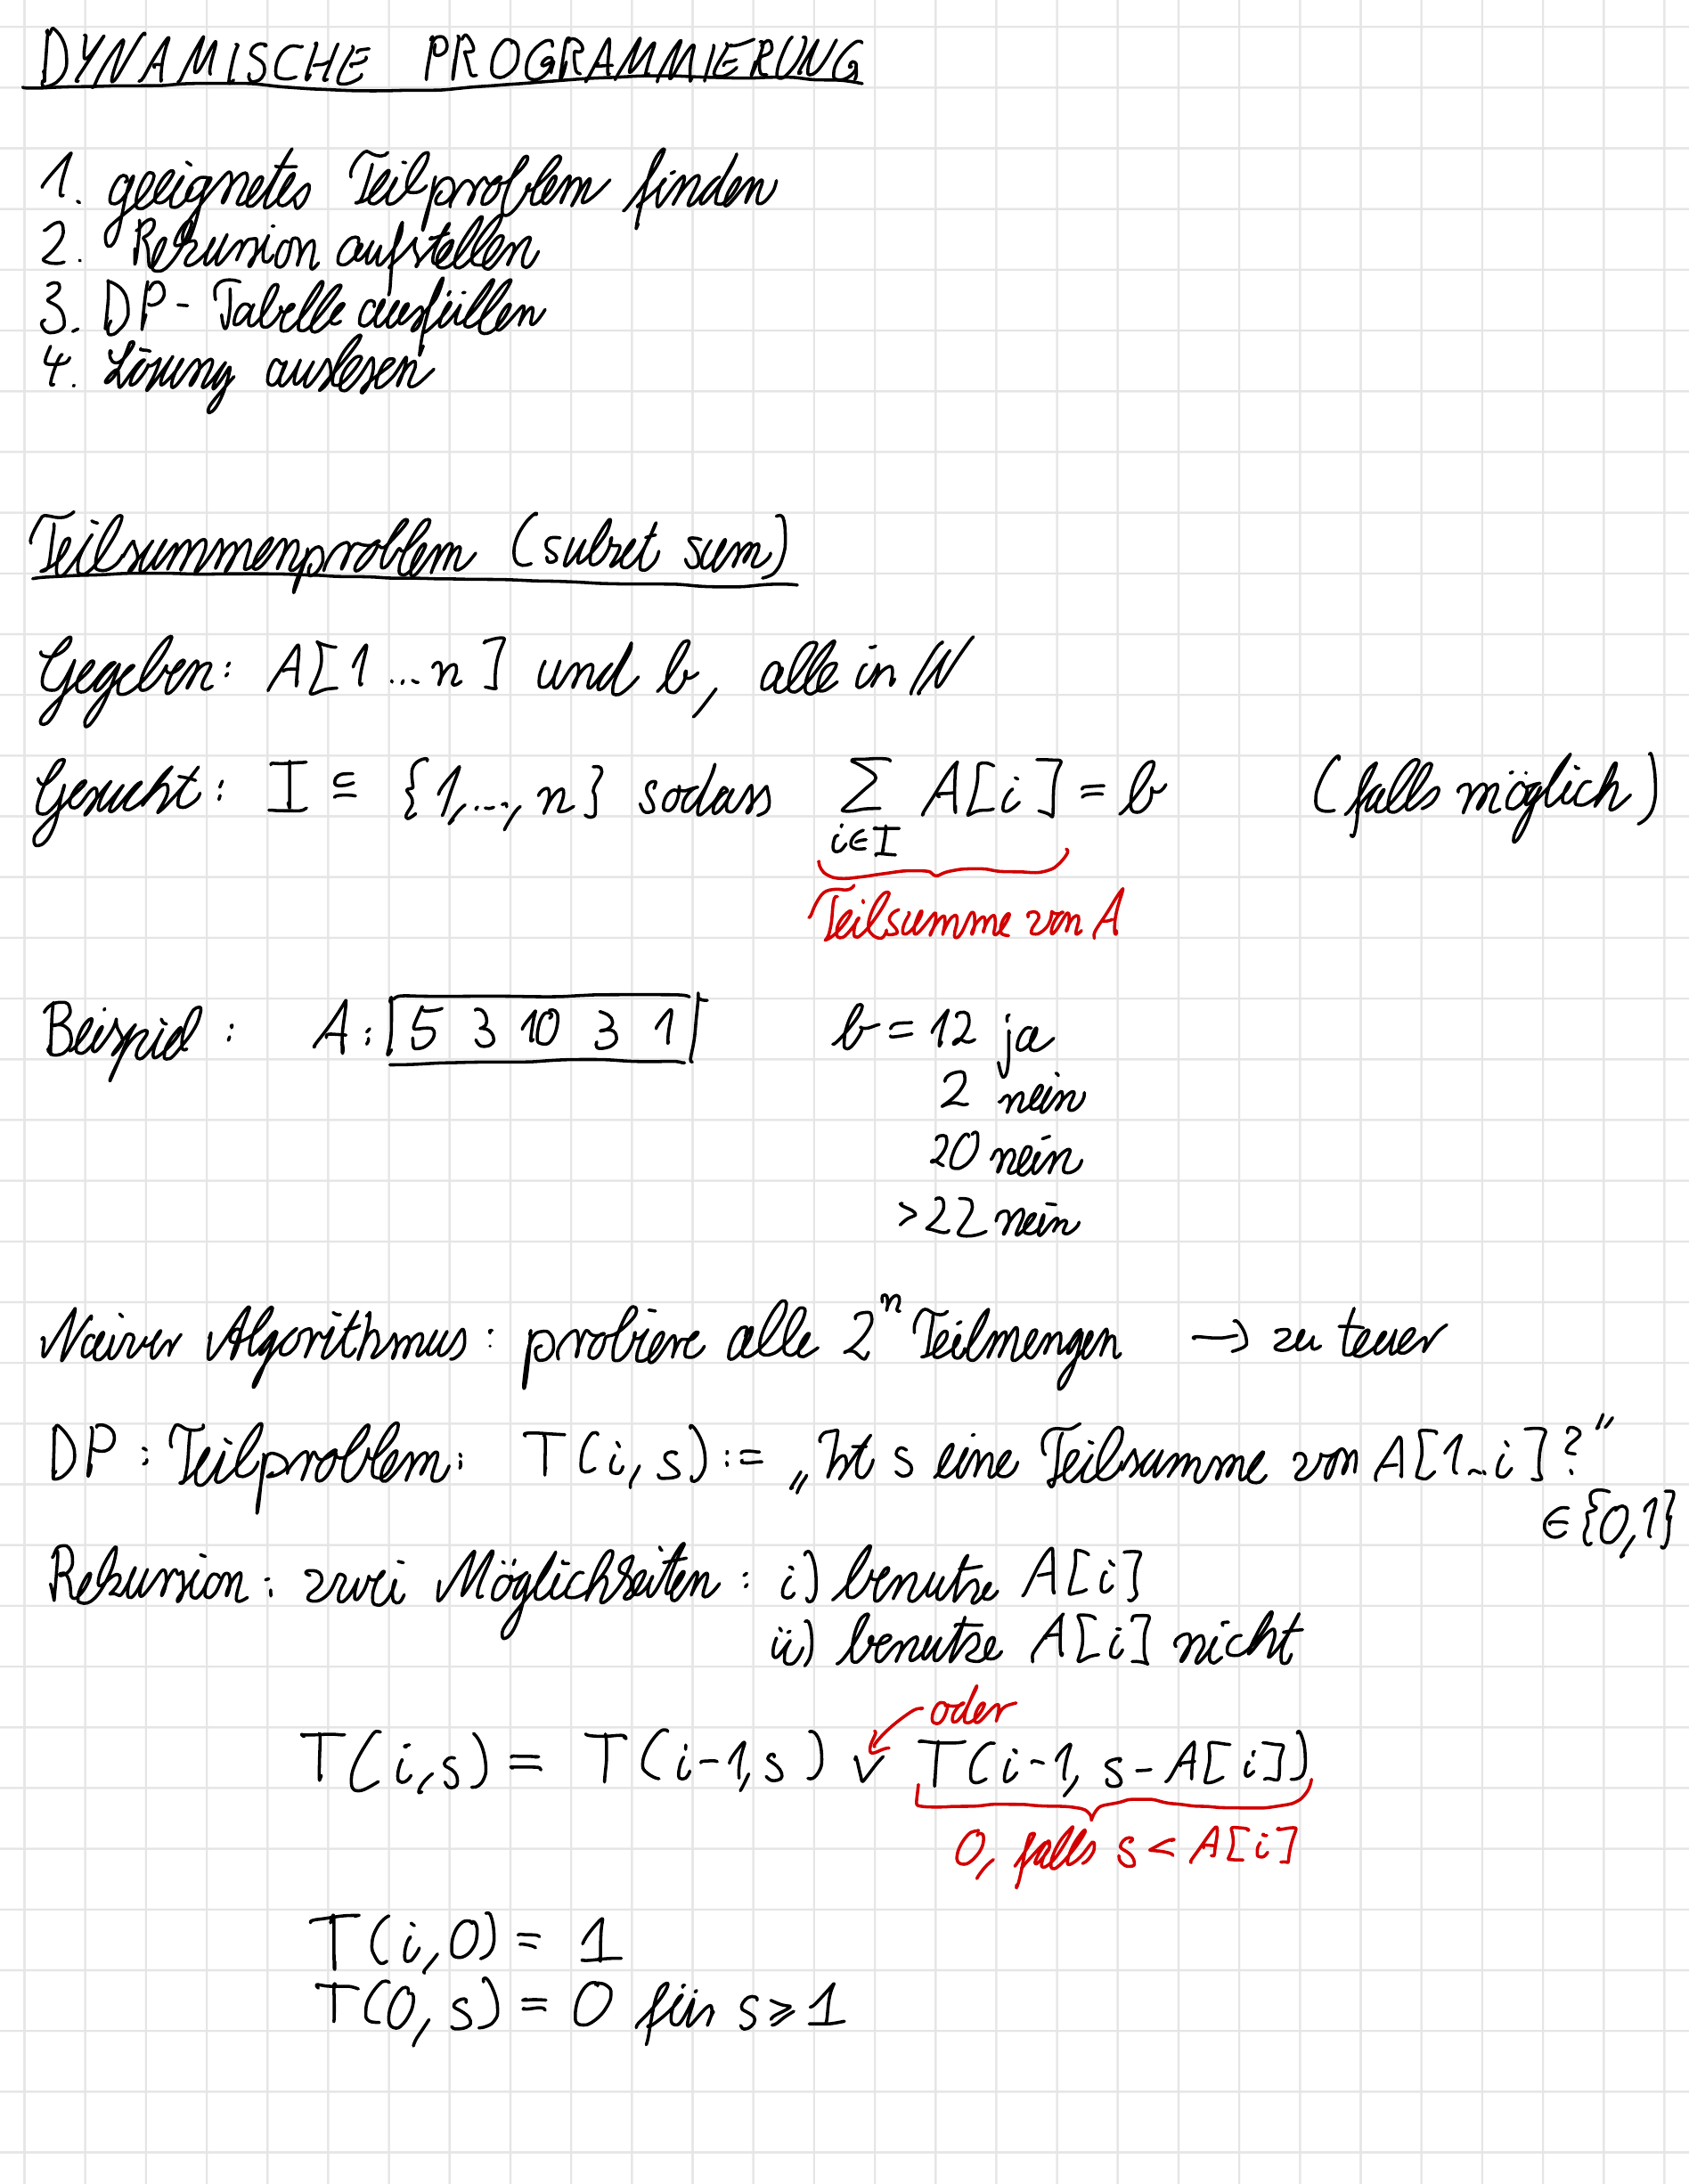 DYNAMISCHE PROGRAMMIERUNG
1. geeignetes Teilproblem finden
2. Rekursion aufstellen
3. DP-Tabelle ausfüllen
4. Lösung auslesen
Teilsummenproblem (subset sum)
Gegeben: A[1...n] und b, alle in ℕ
Gesucht: I ⊆ {1,...,n} sodass ∑ A[i] = b (falls möglich)
i∈I
Teilsumme von A
Beispiel: A: 5 3 10 3 1 b = 12 ja
2 nein
20 nein
>22 nein
Naiver Algorithmus: probiere alle 2ⁿ Teilmengen → zu teuer
DP: Teilproblem: T(i,s) := „Ist s eine Teilsumme von A[1..i]?"
∈{0,1}
Rekursion: zwei Möglichkeiten: i) benutze A[i]
ii) benutze A[i] nicht
oder
T(i,s) = T(i-1,s) ∨ T(i-1, s-A[i])
0, falls s < A[i]
T(i,0) = 1
T(0,s) = 0 für s ≥ 1